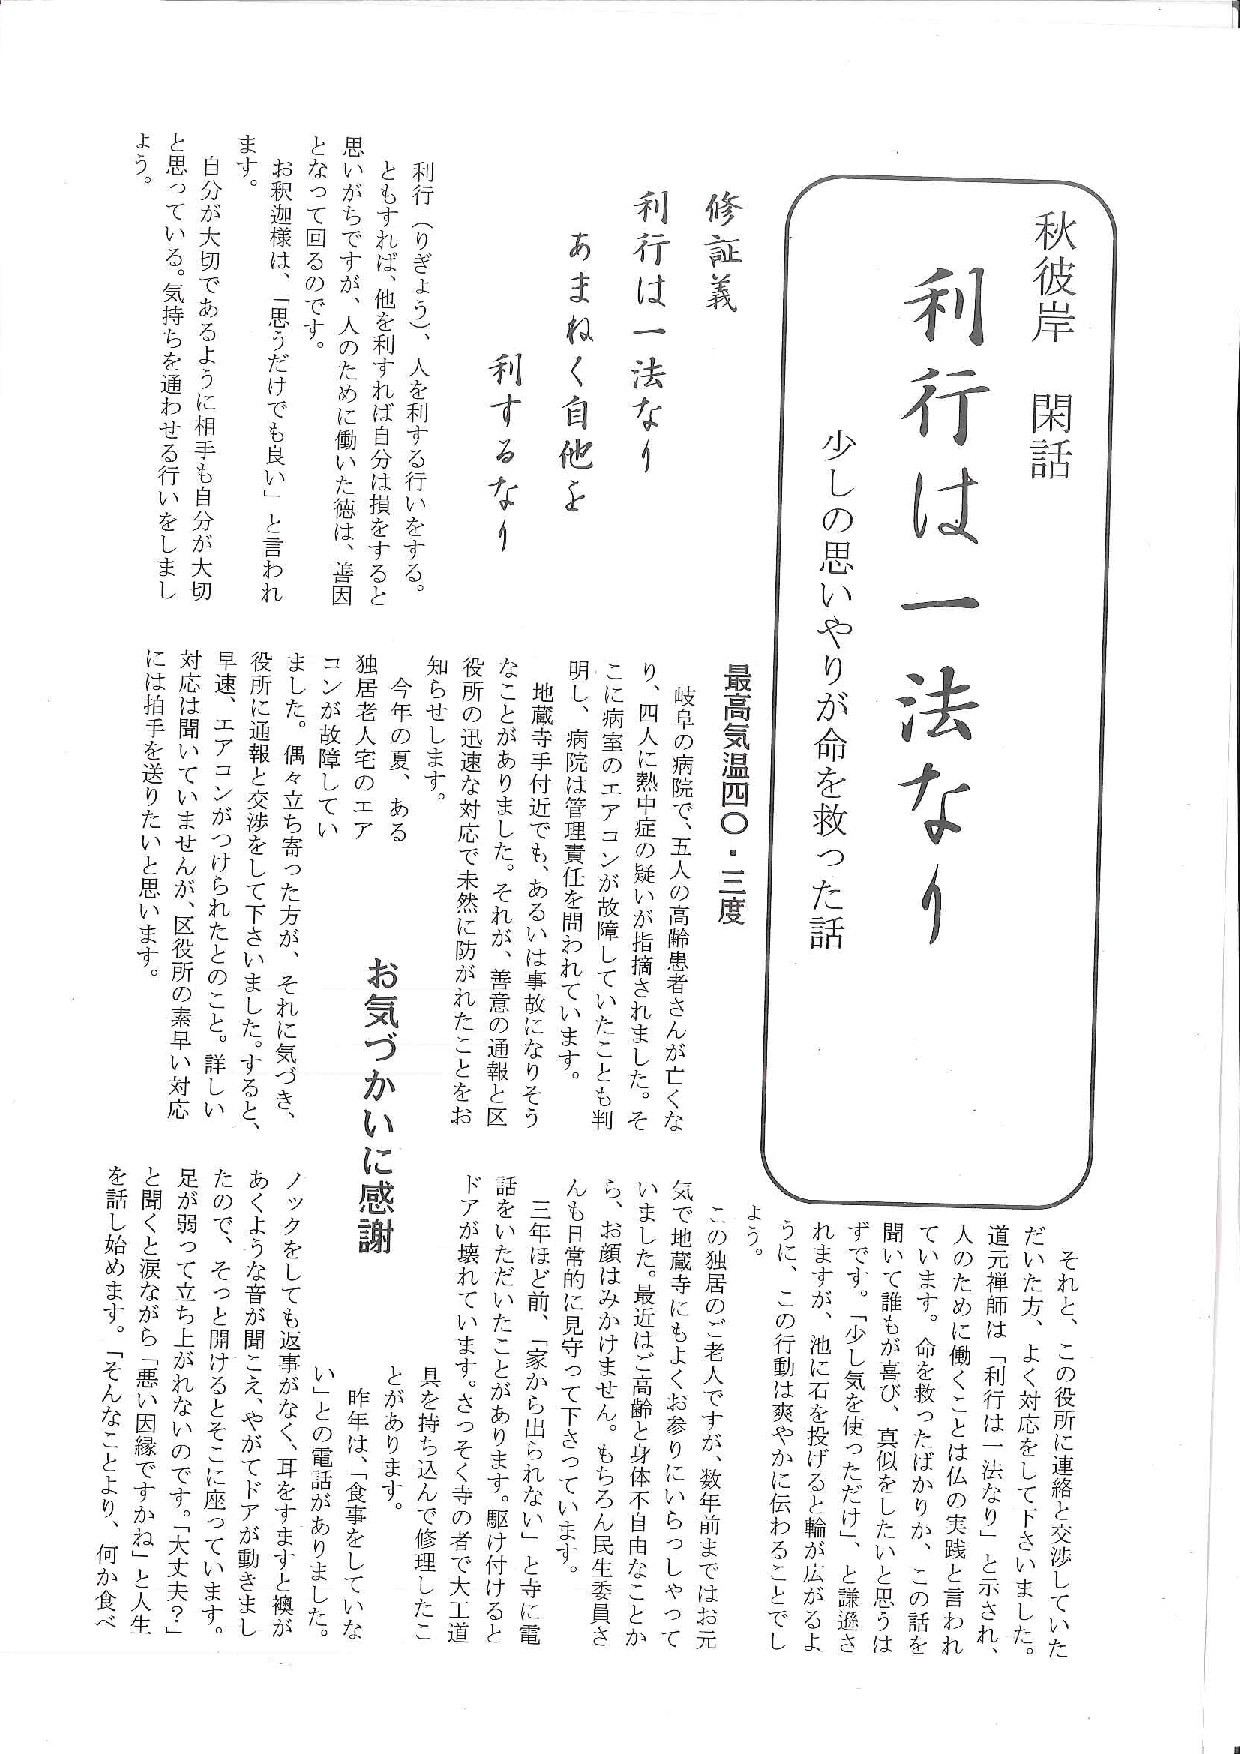 秋彼岸　閑話
利行は一法なり
少しの思いやりが命を救った話
修証義
利行は一法なり
あまねく自他を
利するなり
利行（りぎょう）、人を利する行いをする。
ともすれば、他を利すれば自分は損をすると
思いがちですが、人のために働いた徳は、善因
となって回るのです。
お釈迦様は、「思うだけでも良い」と言われ
ます。
自分が大切であるように相手も自分が大切
と思っている。気持ちを通わせる行いをしまし
ょう。
最高気温四〇・三度
岐阜の病院で、五人の高齢患者さんが亡くな
り、四人に熱中症の疑いが指摘されました。そ
こに病室のエアコンが故障していたことも判
明し、病院は管理責任を問われています。
地蔵寺手付近でも、あるいは事故になりそう
なことがありました。それが、善意の通報と区
役所の迅速な対応で未然に防がれたことをお
知らせします。
今年の夏、ある
独居老人宅のエア
コンが故障してい
ました。偶々立ち寄った方が、それに気づき、
役所に通報と交渉をして下さいました。すると、
早速、エアコンがつけられたとのこと。詳しい
対応は聞いていませんが、区役所の素早い対応
には拍手を送りたいと思います。
お気づかいに感謝
それと、この役所に連絡と交渉していた
だいた方、よく対応をして下さいました。
道元禅師は「利行は一法なり」と示され、
人のために働くことは仏の実践と言われ
ています。命を救ったばかりか、この話を
聞いて誰もが喜び、真似をしたいと思うは
ずです。「少し気を使っただけ」、と謙遜さ
れますが、池に石を投げると輪が広がるよ
うに、この行動は爽やかに伝わることでし
ょう。
この独居のご老人ですが、数年前まではお元
気で地蔵寺にもよくお参りにいらっしゃって
いました。最近はご高齢と身体不自由なことか
ら、お顔はみかけません。もちろん民生委員さ
んも日常的に見守って下さっています。
三年ほど前、「家から出られない」と寺に電
話をいただいたことがあります。駆け付けると
ドアが壊れています。さっそく寺の者で大工道
具を持ち込んで修理したこ
とがあります。
昨年は、「食事をしていな
い」との電話がありました。
ノックをしても返事がなく、耳をすますと襖が
あくような音が聞こえ、やがてドアが動きまし
たので、そっと開けるとそこに座っています。
足が弱って立ち上がれないのです。「大丈夫？」
と聞くと涙ながら「悪い因縁ですかね」と人生
を話し始めます。「そんなことより、何か食べ